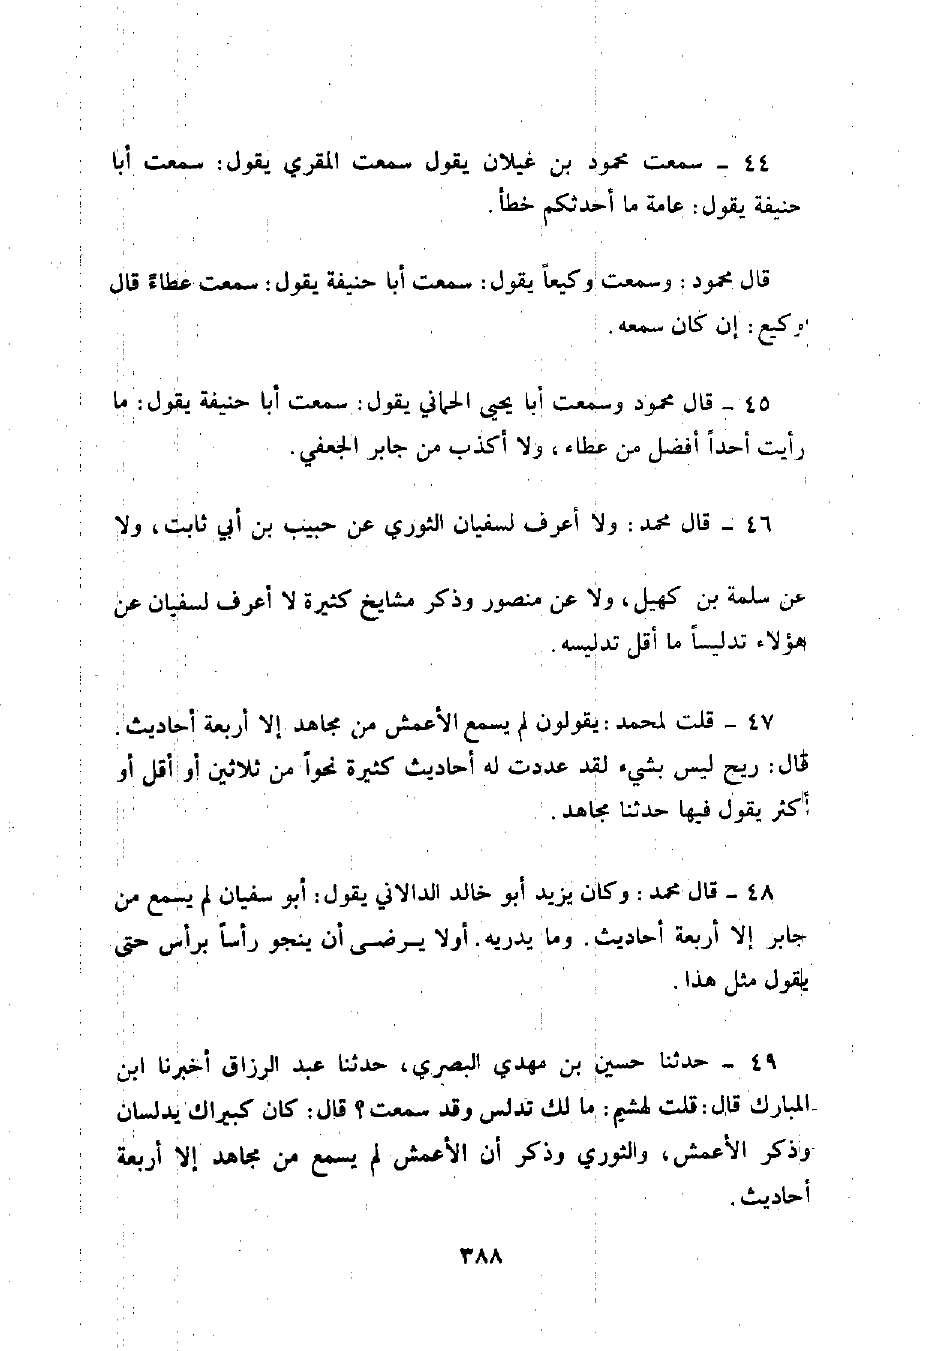 ٤٤ ـ سمعت محمود بن غيلان يقول سمعت المقري يقول: سمعت أبا
حنيفة يقول: عامة ما أحدثكم خطأ.
قال محمود: وسمعت وكيعاً يقول: سمعت أبا حنيفة يقول: سمعت عطاءً قال
وكيع: إن كان سمعه.
٤٥ ـ قال محمود وسمعت أبا يحيى الحماني يقول: سمعت أبا حنيفة يقول: ما
رأيت أحداً أفضل من عطاء، ولا أكذب من جابر الجعفي.
٤٦ ـ قال محمد: ولا أعرف لسفيان الثوري عن حبيب بن أبي ثابت، ولا
عن سلمة بن كهيل، ولا عن منصور وذكر مشايخ كثيرة لا أعرف لسفيان عن
هؤلاء تدليساً ما أقل تدليسه.
٤٧ ـ قلت لمحمد: يقولون لم يسمع الأعمش من مجاهد إلا أربعة أحاديث.
قال: ريح ليس بشيء لقد عددت له أحاديث كثيرة نحواً من ثلاثين أو أقل أو
أكثر يقول فيها حدثنا مجاهد.
٤٨ ـ قال محمد: وكان يزيد أبو خالد الدالاني يقول: أبو سفيان لم يسمع من
جابر إلا أربعة أحاديث. وما يدريه. أولا يرضى أن ينجو رأساً برأس حتى
يقول مثل هذا.
٤٩ ـ حدثنا حسين بن مهدي البصري، حدثنا عبد الرزاق أخبرنا ابن
المبارك قال: قلت لهشيم: ما لك تدلس وقد سمعت؟ قال: كان كبيراك يدلسان
وذكر الأعمش، والثوري وذكر أن الأعمش لم يسمع من مجاهد إلا أربعة
أحاديث.
٣٨٨